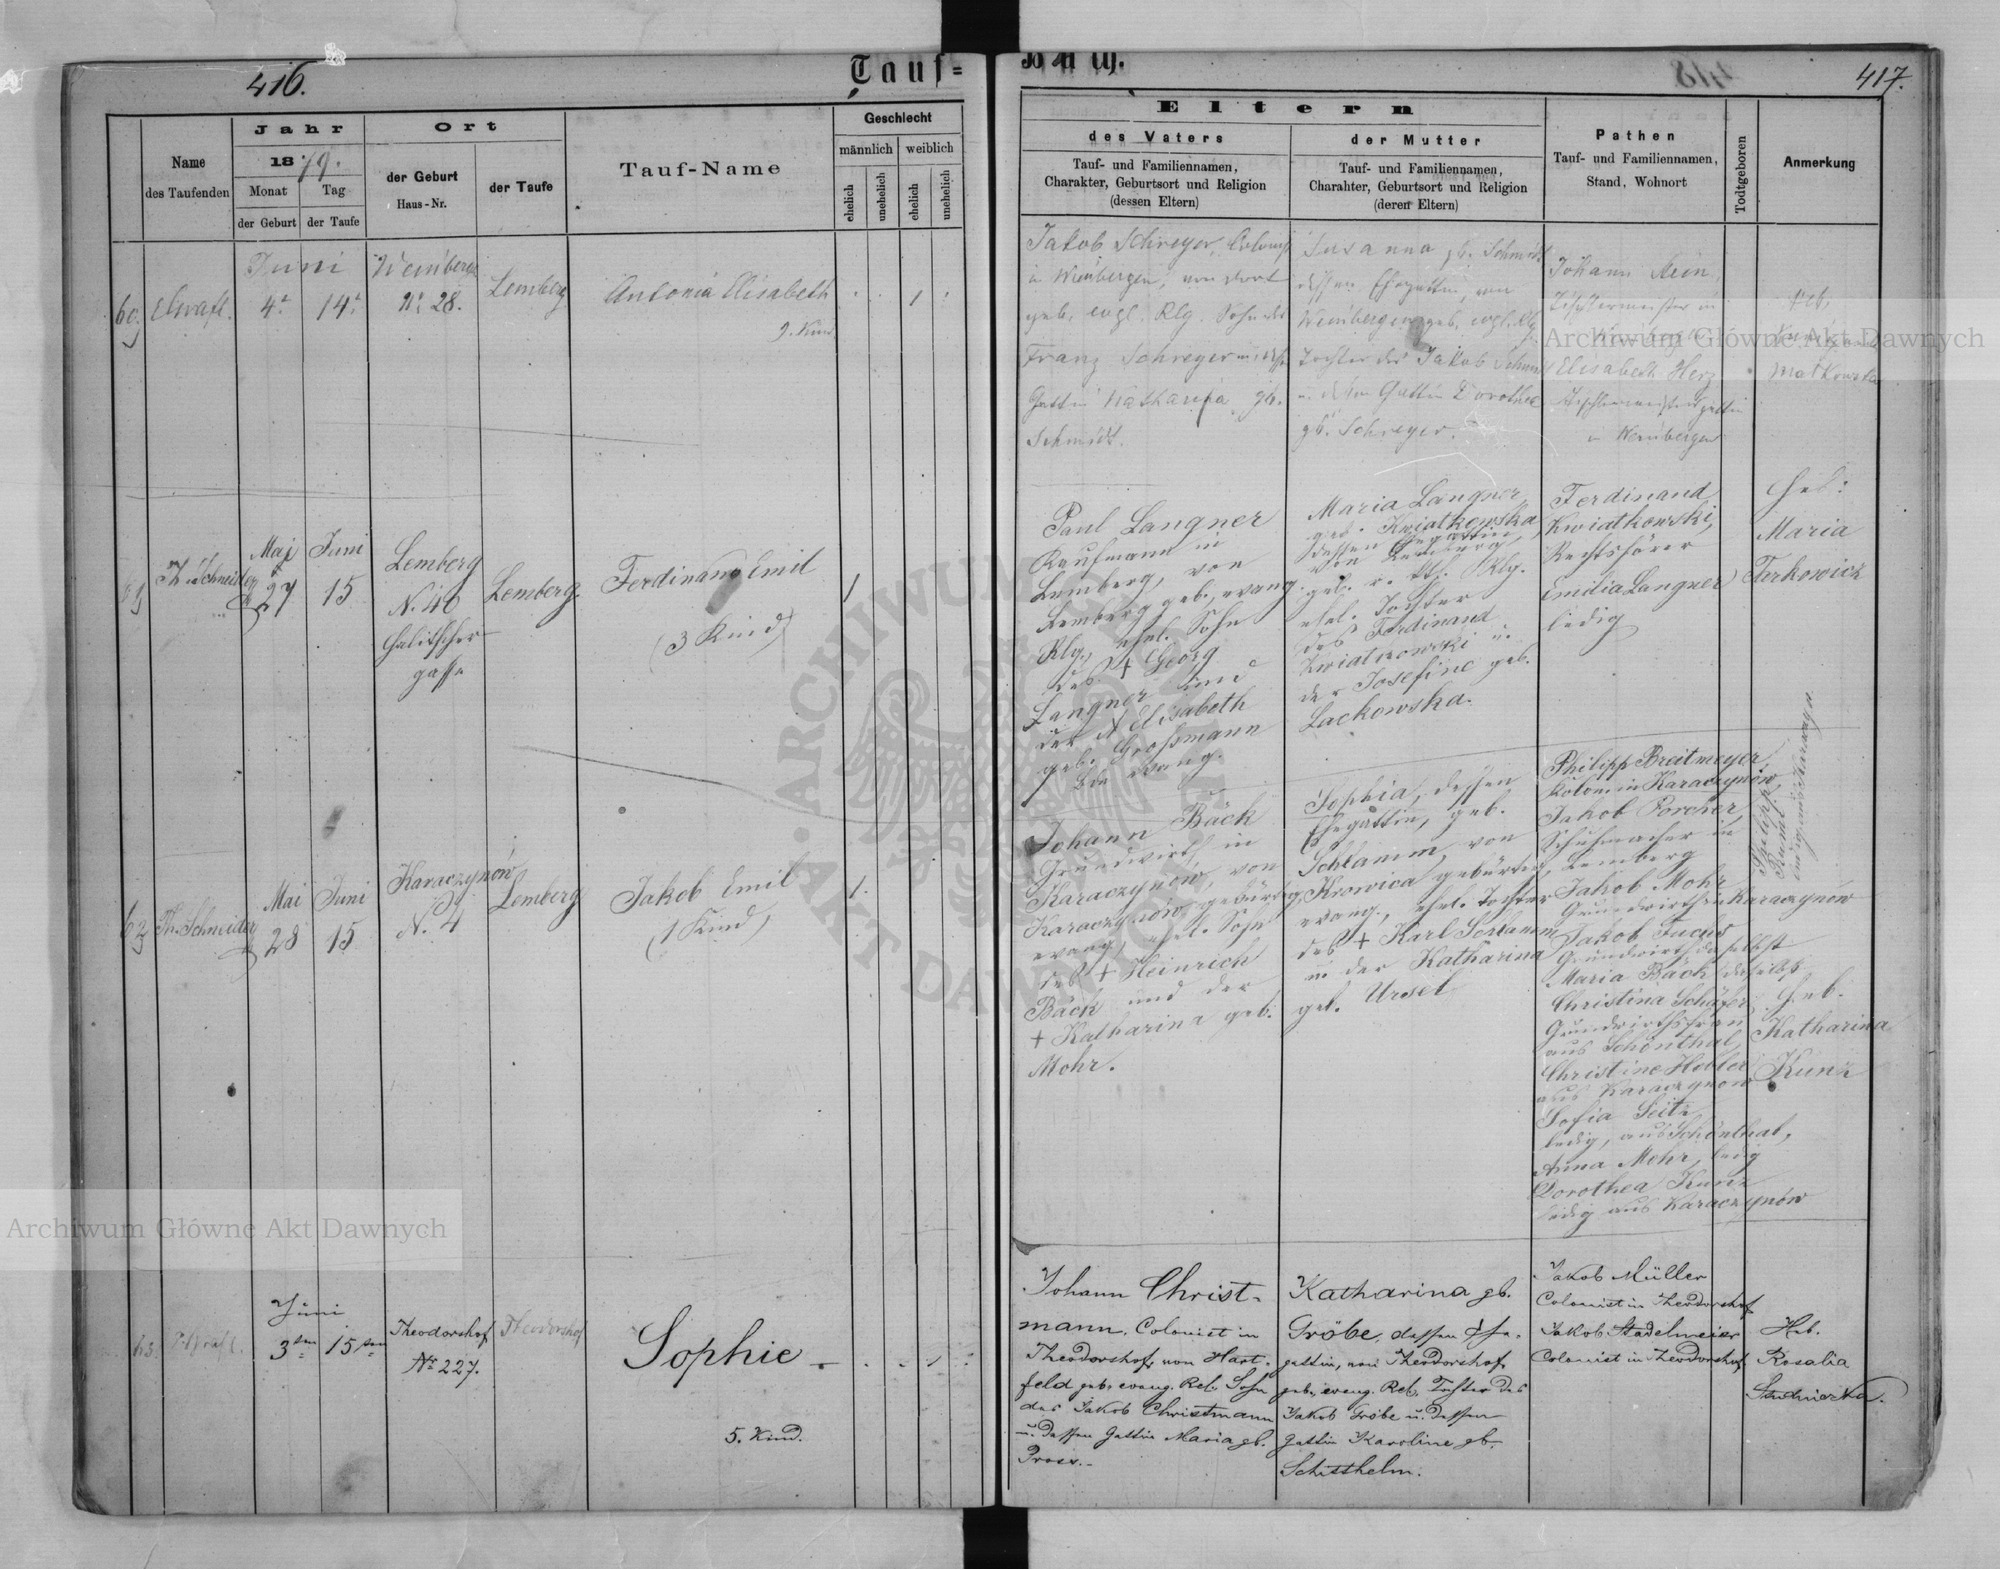 416.
Tauf-
Buch.
417.
Name
des Taufenden
Jahr
1879.
Monat
Tag
der Geburt
der Taufe
Ort
der Geburt
Haus-Nr.
der Taufe
Tauf-Name
Geschlecht
männlich
weiblich
ehelich
unehelich
ehelich
unehelich
Eltern
des Vaters
Tauf- und Familiennamen,
Charakter, Geburtsort und Religion
(dessen Eltern)
der Mutter
Tauf- und Familiennamen,
Charahter, Geburtsort und Religion
(deren Eltern)
Pathen
Tauf- und Familiennamen,
Stand, Wohnort
Todtgeboren
Anmerkung
60.
Juni
4t
14t
Weinbergen
No 28.
Lemberg
Antonia Elisabeth
9. Kind
1
Jakob Schreyer,
in Weinbergen, von dort
geb. evgl. Rlg. Sohn des
Franz Schreyer
Gattin Katharina gb.
Schmidt.
Susanna gb. Schmidt
dessen Ehegattin, von
Weinbergen geb. evgl. Rlg
Tochter des Jakob Schmidt
u. dessen Gattin Dorothea
gb. Schreyer.
Johann
Tischlermeister in
Elisabeth Herz
in Weinbergen
61
Th. Schneider
Mai
27
Juni
15
Lemberg
N. 40
Halitscher-
gasse
Lemberg
Ferdinand Emil
(3 Kind)
1
Paul Langner
Kaufmann in
Lemberg, von
Lemberg geb., evang.
Rlg., ehel. Sohn
des + Georg
Langner und
der + Elisabeth
geb. Grossmann
Maria Langner,
geb. Kwiatkowska
dessen Ehegattin,
von Lemberg,
geb. r. kth. Rlg.
ehel. Tochter
des Ferdinand
Kwiatkowski u.
der Josefine geb.
Lackowska.
Ferdinand
Kwiatkowski,
Rechtshörer
Emilia Langner
ledig
Heb:
Maria
Turkowicz
62
Th. Schneider
Mai
28
Juni
15
Karaczynów
N. 4
Lemberg
Jakob Emil
(1 Kind)
1.
Johann Bäck
Grundwirth, in
Karaczynów, von
Karaczynów gebürtig,
evang., ehel. Sohn
des + Heinrich
Bäck und der
+ Katharina geb.
Mohr.
Sophia, dessen
Ehegattin, geb.
Schlamm, von
Krowica gebürtig,
evang., ehel. Tochter
des + Karl Schlamm
u. der Katharina
geb. Ursel
Philipp Breitmeyer,
Kolon. in Karaczynów,
Jakob Porcher,
Schuhmacher in
Lemberg
Jakob Mohr
Grundwirth in Karaczynów
Jakob Fuchs
Grundwirth daselbst
Maria Bäck daselbst
Christina Schäfer,
Grundwirthsfrau
aus Schönthal,
Christine Hobler
aus Karaczynów
Sofia Seitz
ledig, aus Schönthal,
Anna Mohr, ledig
Dorothea Kunz
ledig aus Karaczynów
Heb.
Katharina
Kunz
63.
Juni
3ten
15ten
Theodorshof
Nr 227.
Theodorshof
Sophie
5. Kind.
Johann Christ-
mann, Colonist in
Theodorshof, von Hart-
feld geb., evang. Rel. Sohn
des Jakob Christmann
u. dessen Gattin Maria gb.
Katharina gb.
Gröbe, dessen Ehe-
gattin, von Theodorshof,
geb., evang. Rel. Tochter des
Jakob Gröbe u. dessen
Gattin Karoline gb.
Schitthelm.
Jakob Müller
Colonist in Theodorshof
Jakob Stadelmeier
Colonist in Theodorshof
Heb.
Rosalia
Archiwum Główne Akt Dawnych
Archiwum Główne Akt Dawnych